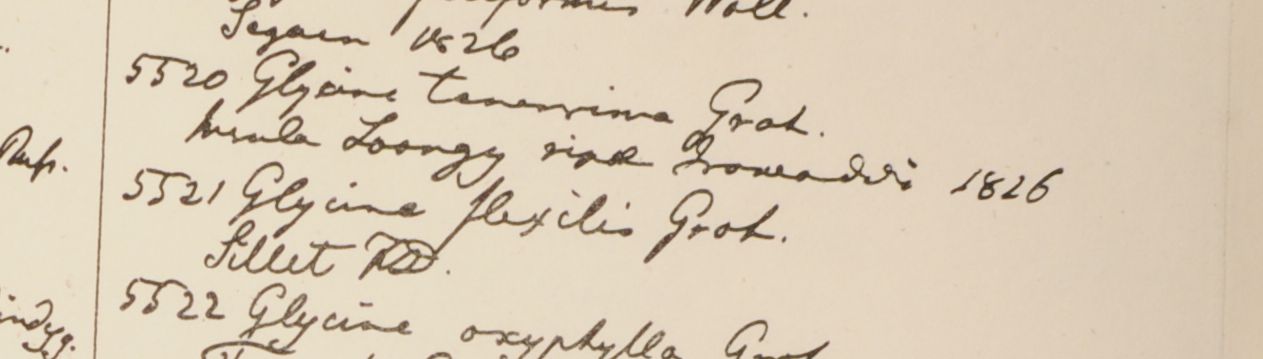 Wall.
Segaen 1826
5520 Glycine tenerrima Grah.
Insula Loongy ripae Irawaddi 1826
Rufs.
5521 Glycine flexilis Grah.
Sillet
5522 Glycine oxyphylla Grah